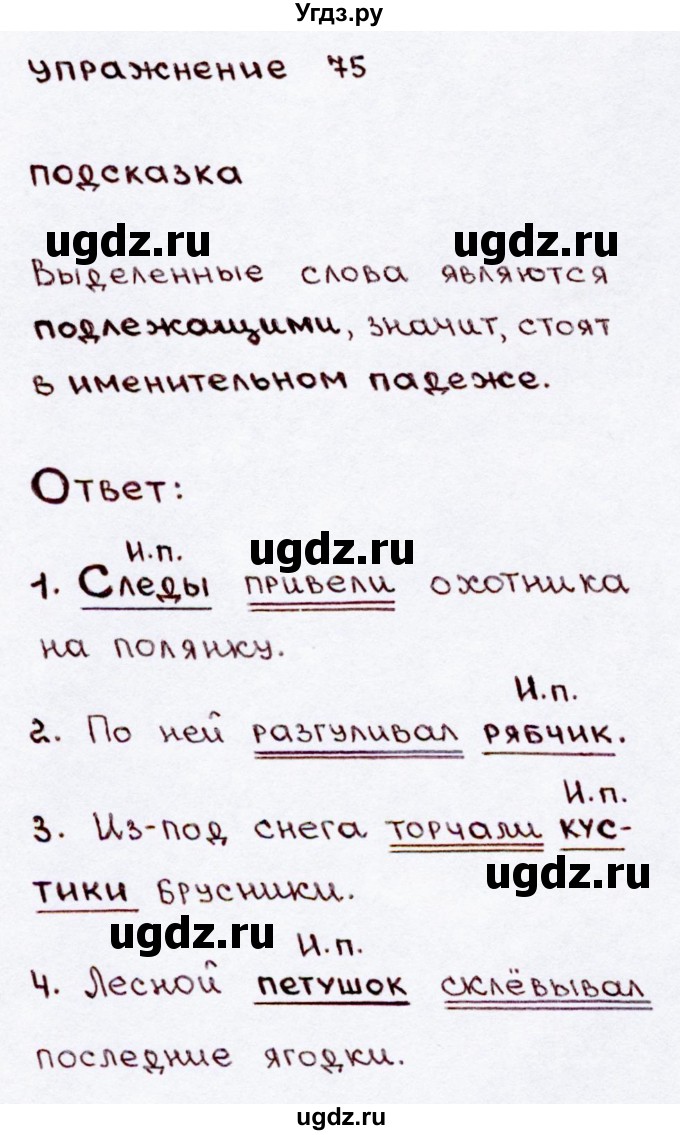 Угдз.ру
упражнение 75
подсказка
ugdz.ru ugdz.ru
Выделенные слова являются
подлежащими, значит, стоят
в именительном падеже.
Ответ:
И.п. ugdz.ru
1. Следы привели охотника
на полянку.
И.п.
2. По ней разгуливал рябчик.
И.п.
3. Из-под снега торчали кус-
ugdz.ru
тики брусники.
ugdz.ru И.п.
4. Лесной петушок склёвывал
последние ягодки.
ugdz.ru